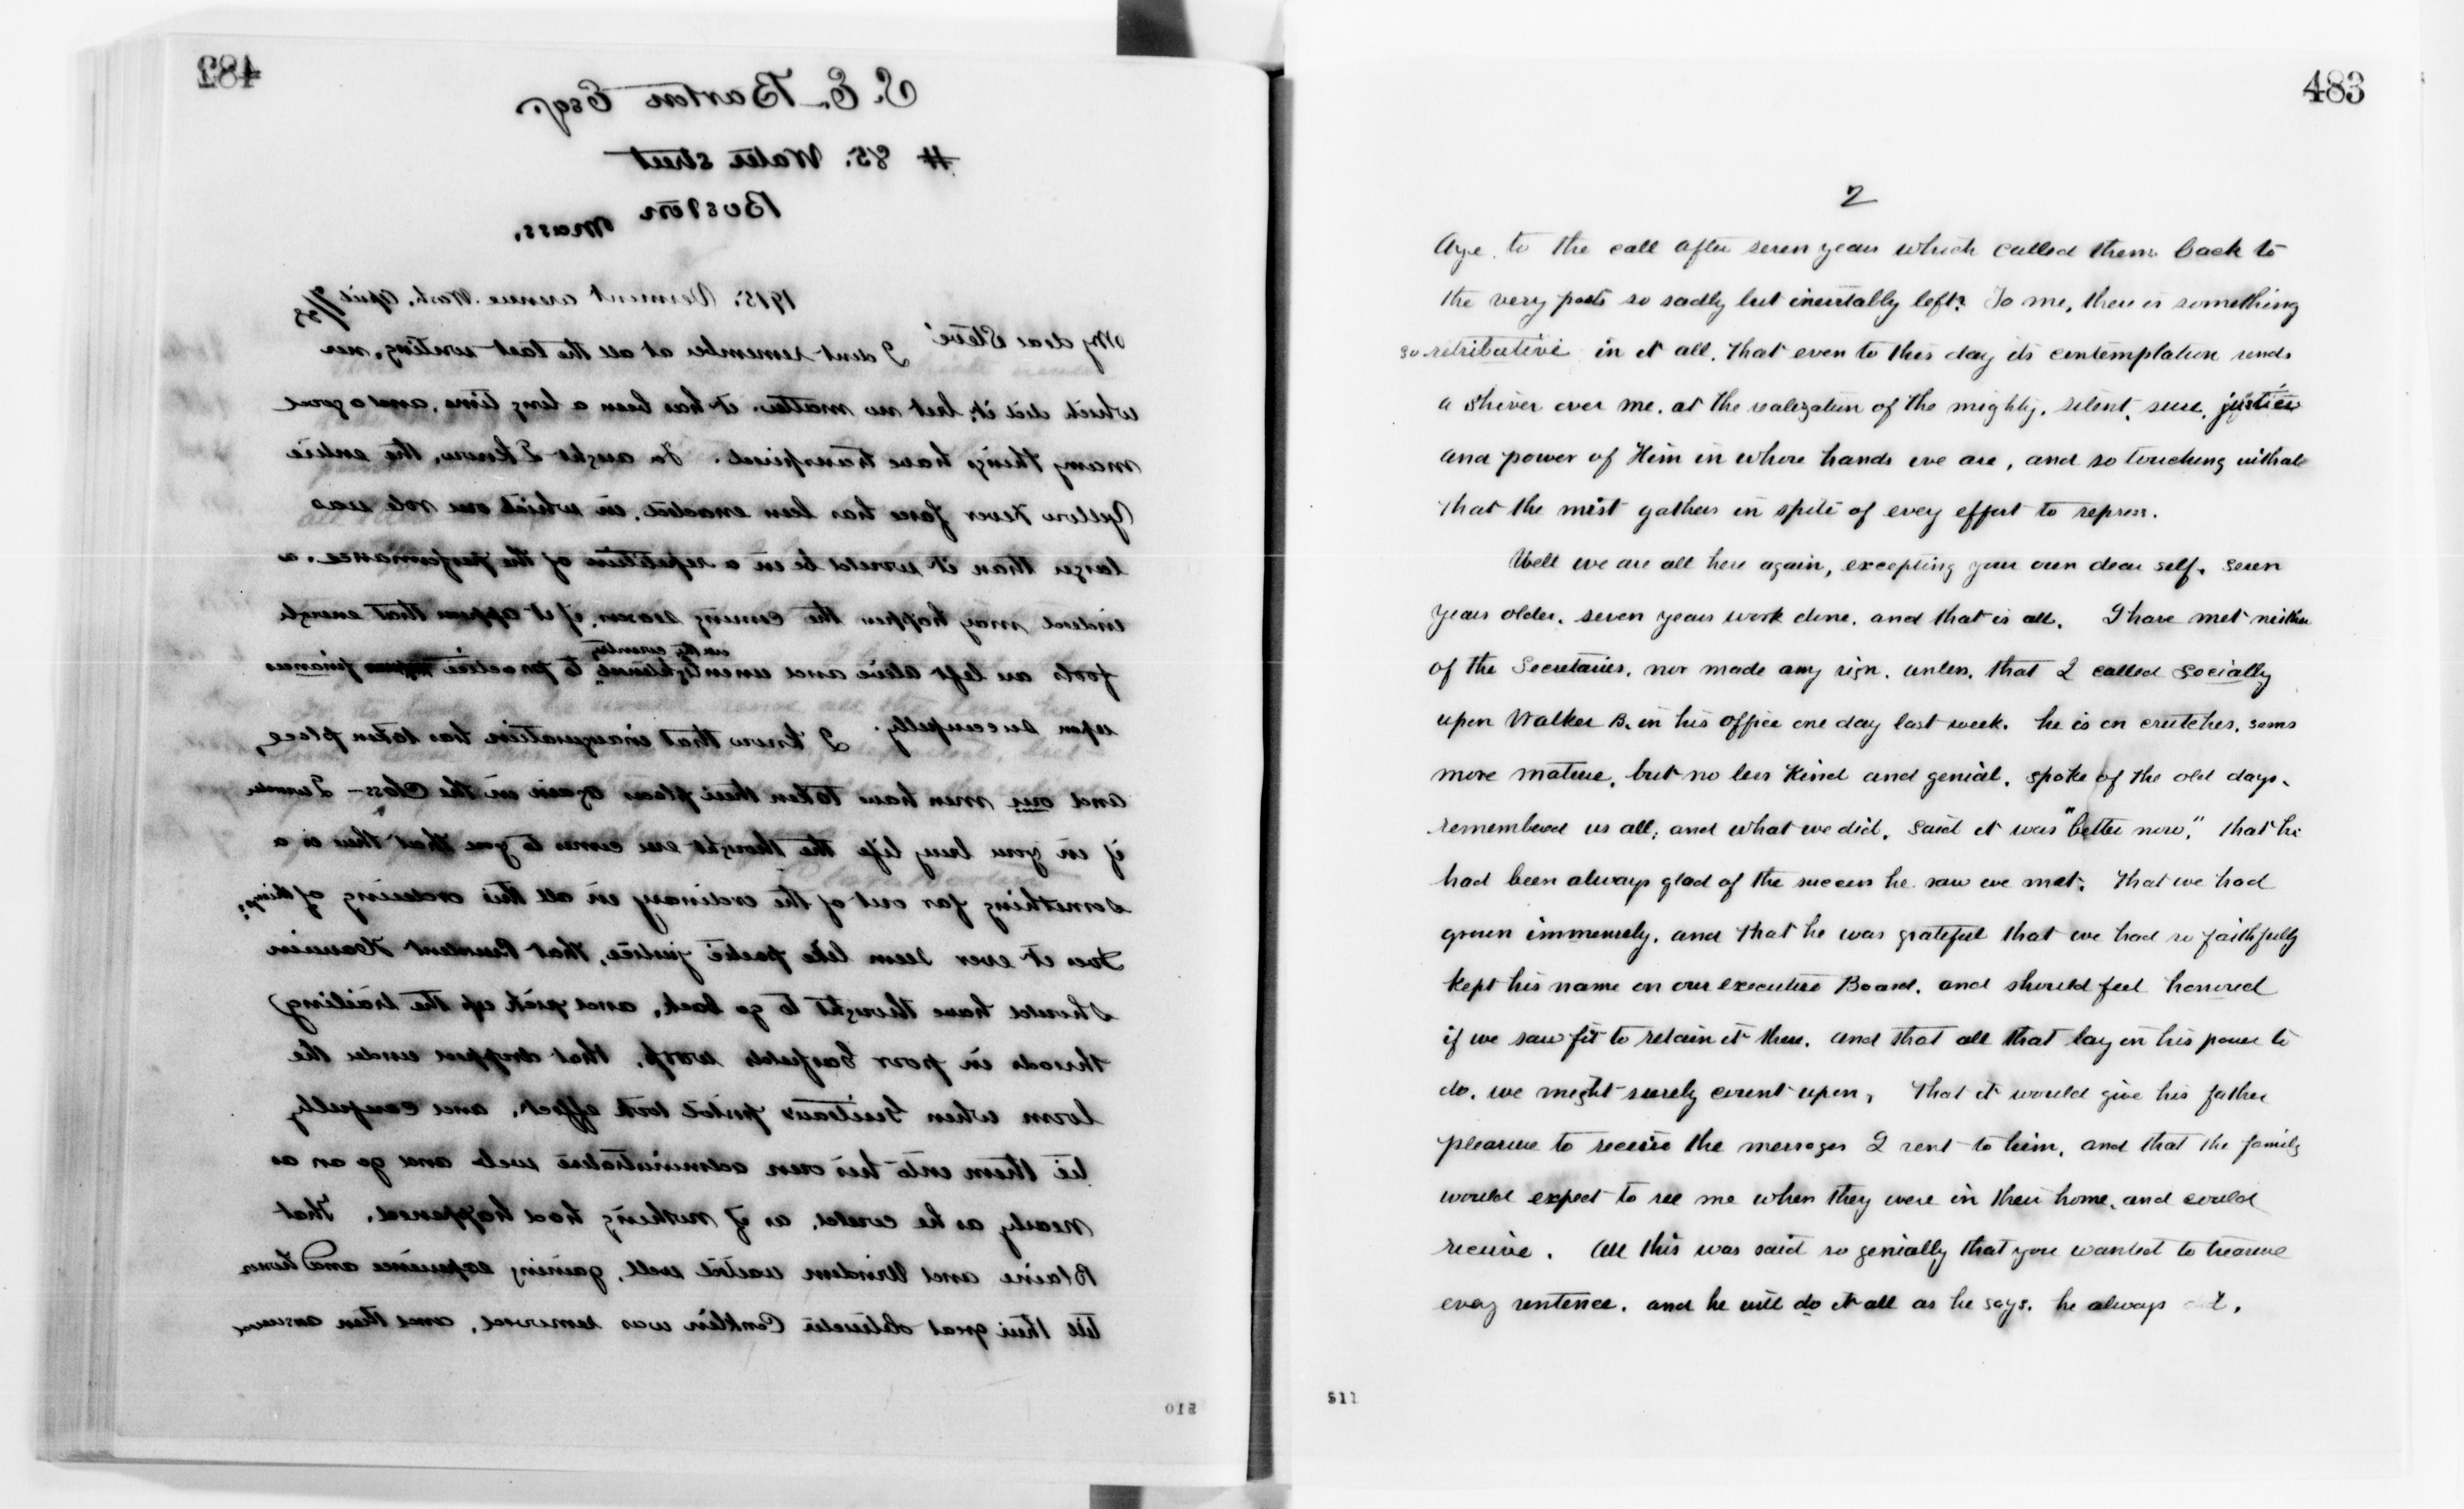 482
S. E. Barton Esq.
# 85. Water street
Boston
Mass.
1915. Vermont avenue. Wash. April
My dear Steve'
I dont remember at all the last writing, nor
which did it; but no matter. it has been a long time, and a good
many things have transpired. To aught I know, the entire
Yellow Fever farce has been enacted, in which our role was
larger than it would be in a repetition of the performance. as
indeed may happen the coming season, if it appear that enough
fools are left alive and unenlightened to practice finances
upon successfully. I know that inauguration has taken place,
and our men have taken their places again in the Class - I wonder
if in your busy life the thought ever comes to you that there is a
something far out of the ordinary in all this ordering of things;
Does it ever seem like poetic justice, that President Harrison
should have thought to go back, and pick up the trailing
threads in poor Garfields warp, that dropped under the
loom when Guiteau's pistol took effect, and carefully
tie them into his own administrative web and go on as
nearly as he could, as if nothing had happened. That
Blaine and Windom waited well, gaining experience and honor
till their great obstructer Conklin was removed, and then answered
510
483
2
Aye. to the call after seven years which called them back to
the very posts so sadly but inevitably left? To me, there is something
so retributive in it all, that even to this day its contemplation sends
a shiver over me, at the realization of the mighty, silent, sure, justice
and power of Him in whose hands we are, and so touching withal
that the mist gathers in spite of every effort to repress.
Well we are all here again, excepting your own dear self. seven
years older. seven years work done. and that is all. I have met neither
of the Secretaries, nor made any sign. unless, that I called socially
upon Walker B. in his office one day last week. he is on crutches, seems
more mature, but no less kind and genial, spoke of the old days.
remembered us all; and what we did, said it was "better now," that he
had been always glad of the success he saw we met; that we had
grown immensely, and that he was grateful that we had so faithfully
kept his name on our executive Board, and should feel honored
if we saw fit to retain it there. and that all that lay in his power to
do, we might surely count upon, that it would give his father
pleasure to receive the messages I sent to him, and that the family
would expect to see me when they were in their home, and could
receive. All this was said so genially that you wanted to treasure
every sentence. and he will do it all as he says. he always did.
511